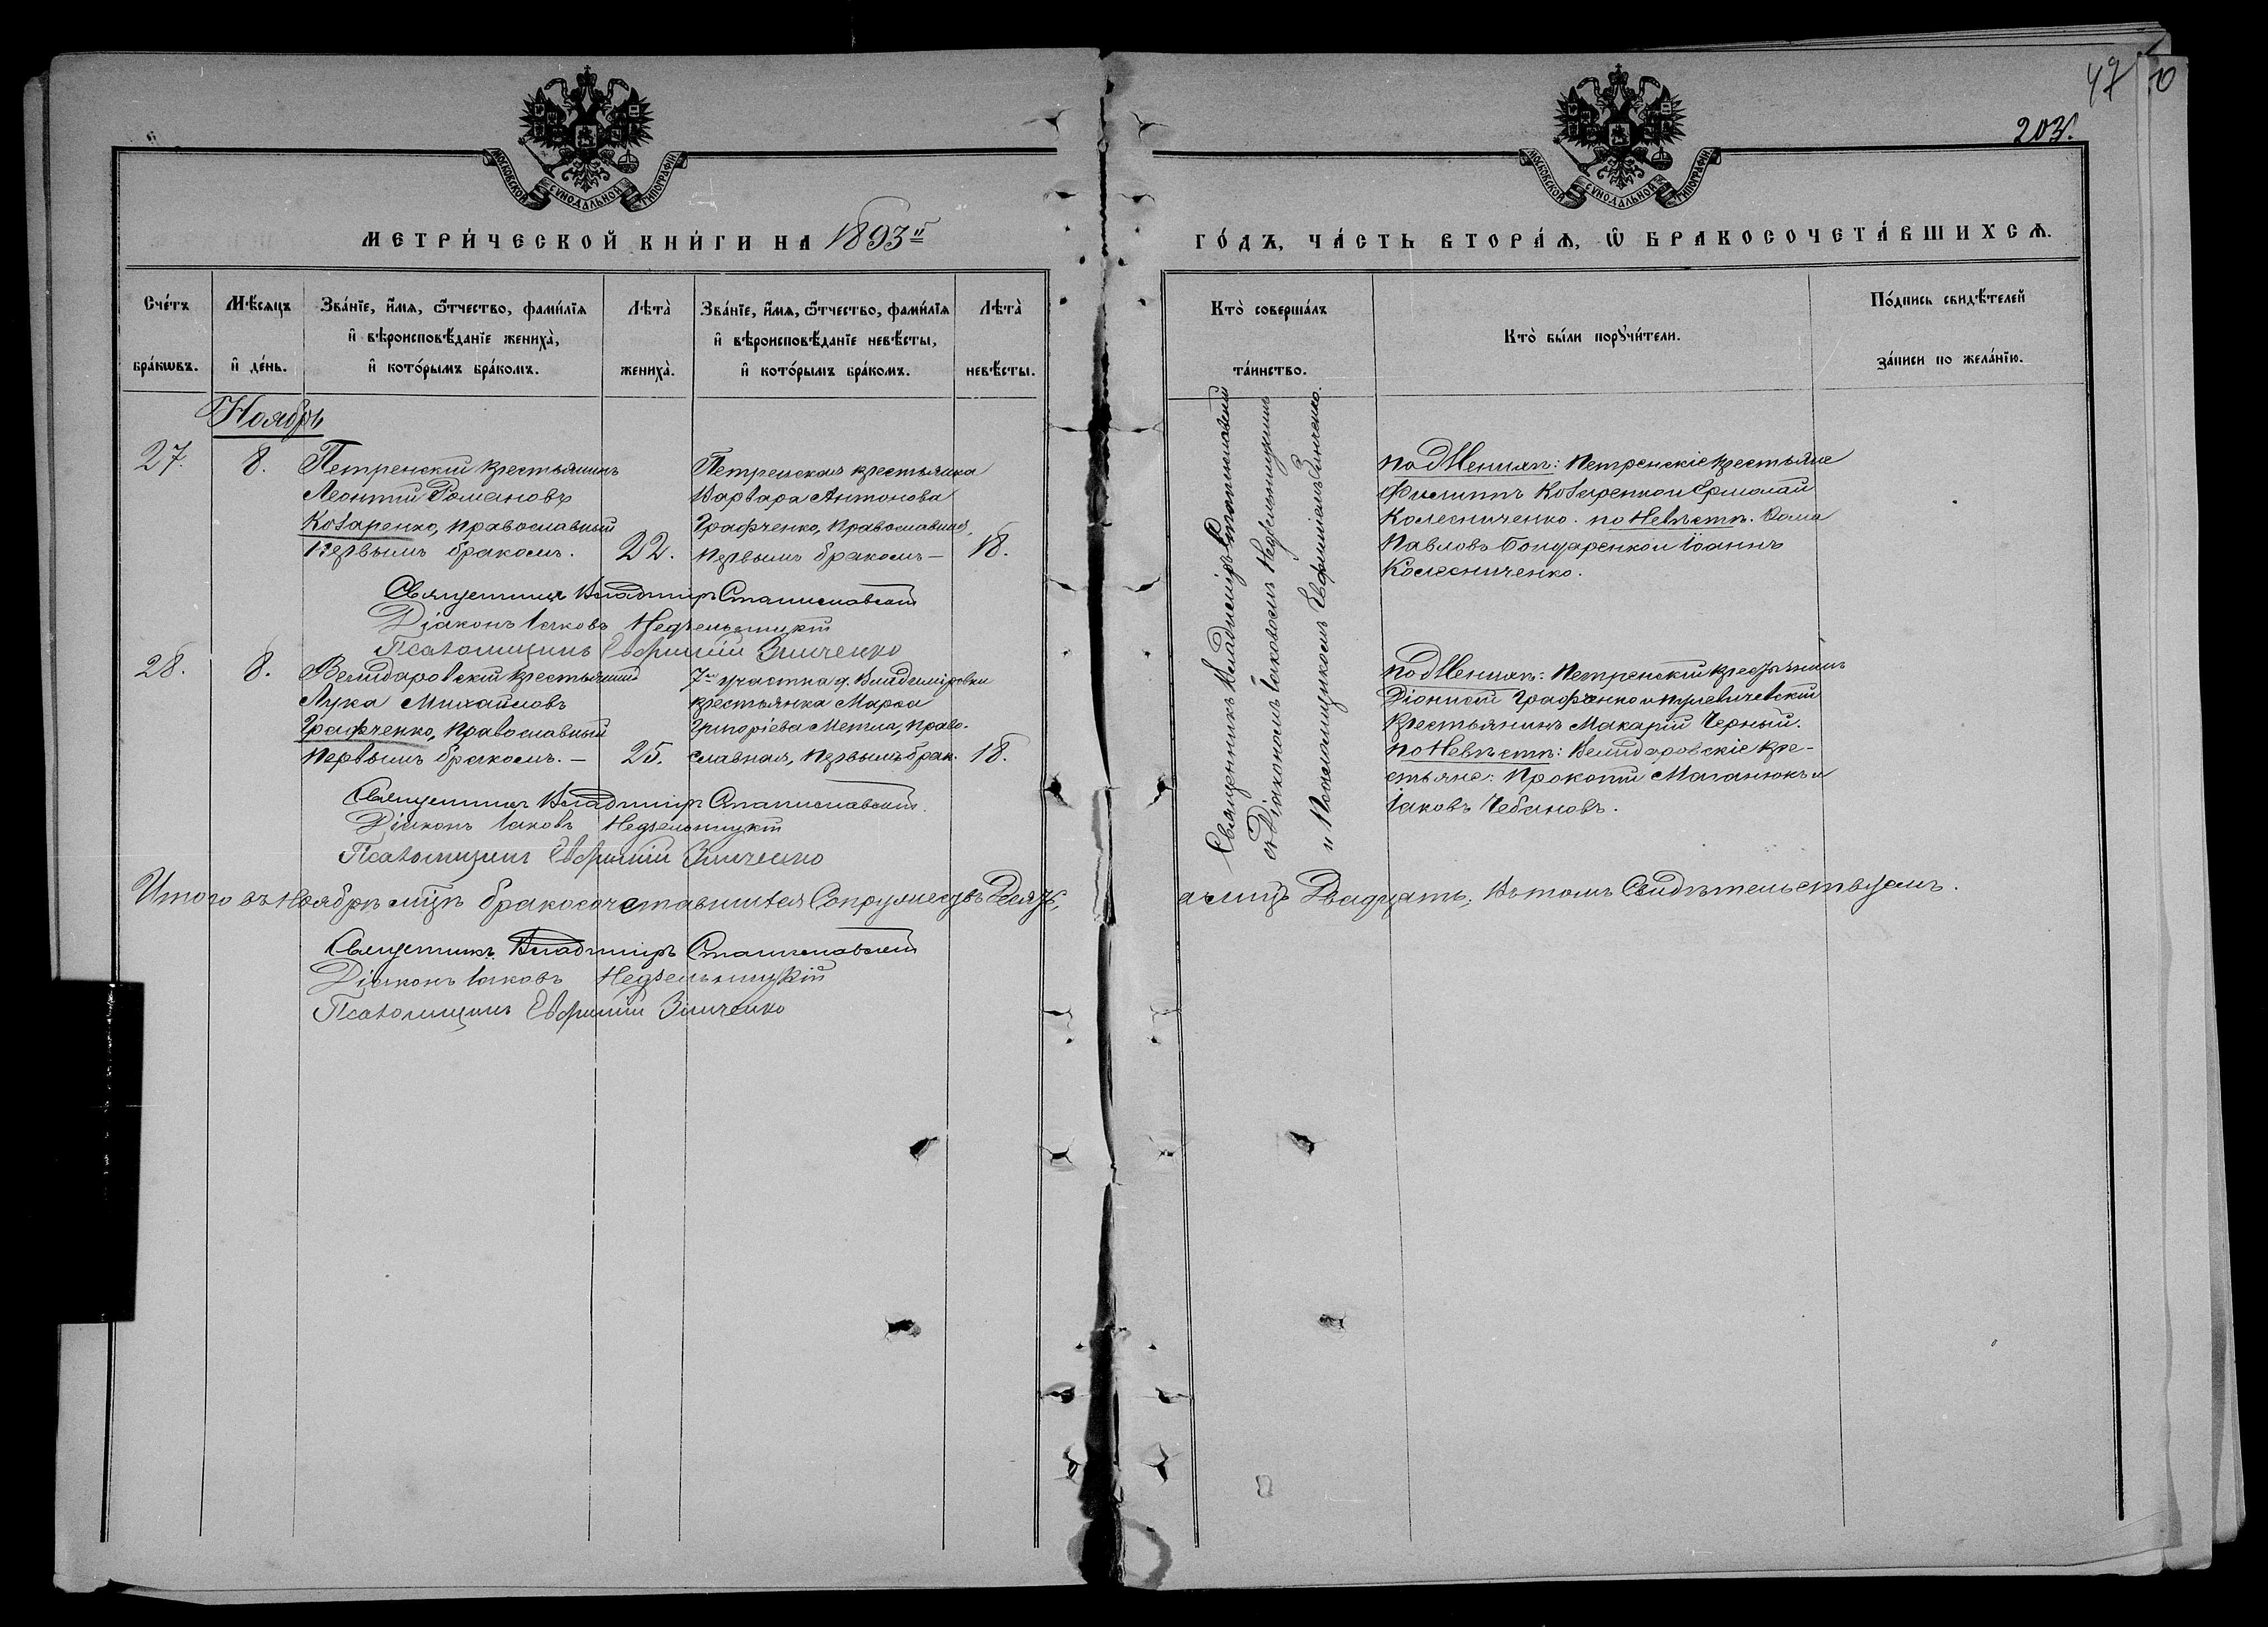 47
203.
МОСКОВСКОЙ СѴНОДАЛЬНОЙ ТИПОГРАФІИ
МОСКОВСКОЙ СѴНОДАЛЬНОЙ ТИПОГРАФІИ
МЕТРИ́ЧЕСКОЙ КНИ́ГИ НА 1893й
ГО́ДЪ, ЧА́СТЬ ВТОРА́Ѧ, Ѡ҆ БРАКОСОЧЕТА́ВШИХСѦ.
Сче́тъ бра́кѡвъ.
Мѣ́сяцъ и҆ де́нь.
Зва́нїе, и҆́мѧ, ѻ҆́тчество, фами́лїѧ
и҆ вѣроисповѣ́данїе жениха̀,
и҆ кото́рымъ бра́комъ.
Лѣта̀ жениха̀.
Зва́нїе, и҆́мѧ, ѻ҆́тчество, фами́лїѧ
и҆ вѣроисповѣ́данїе невѣ́сты,
и҆ кото́рымъ бра́комъ.
Лѣта̀ невѣ́сты.
Кто̀ соверша́лъ
та́инство.
Кто̀ бы́ли порꙋчи́тели.
По́дпись свидѣ́телей
за́писи по жела́нїю.
Ноябрь
27.
8.
Петренскій крестьянинъ
Леонтій Романовъ
Козаренко, православный
первымъ бракомъ.
22.
Петренская крестьянка
Варвара Антонова
Графченко, православная,
первымъ бракомъ —
18.
по Женихѣ: Петренскіе крестьяне
Филиппъ Козаренко и Ермолай
Колесниченко. по Невѣстѣ. Фома
Павловъ Бондаренко и Іоаннъ
Колесниченко.
Священникъ Владиміръ Станиславскій
Діаконъ Іаковъ Недзельницкій
Псаломщикъ Евфимій Зинченко
28.
8.
Велидаровскій крестьянинъ
Лука Михайловъ
Графченко, православный
первымъ бракомъ. —
25.
7го участка д. Владиміровки
крестьянка Марѳа
Григоріева Метла, право-
славная, первымъ брак.
18.
по Женихѣ: Петренскій крестьянинъ
Діонисій Графченко и
крестьянинъ Макарій Черный.
по Невѣстѣ: Велидаровскіе кре-
стьяне: Прокопій Маганюкъ и
Іаковъ Чебановъ.
Священникъ Владиміръ Станиславскій
съ Діакономъ Іаковомъ Недзельницкимъ
и Псаломщикомъ Евфиміемъ Зинченко.
Священникъ Владиміръ Станиславскій
Діаконъ Іаковъ Недзельницкій
Псаломщикъ Евфимій Зинченко
Итого въ Ноябрѣ мцѣ бракосочетавшихся Супружествъ Десять,
а лицъ Двадцать; въ томъ Свидѣтельствуемъ.
Священникъ Владиміръ Станиславскій
Діаконъ Іаковъ Недзельницкій
Псаломщикъ Евфимій Зинченко